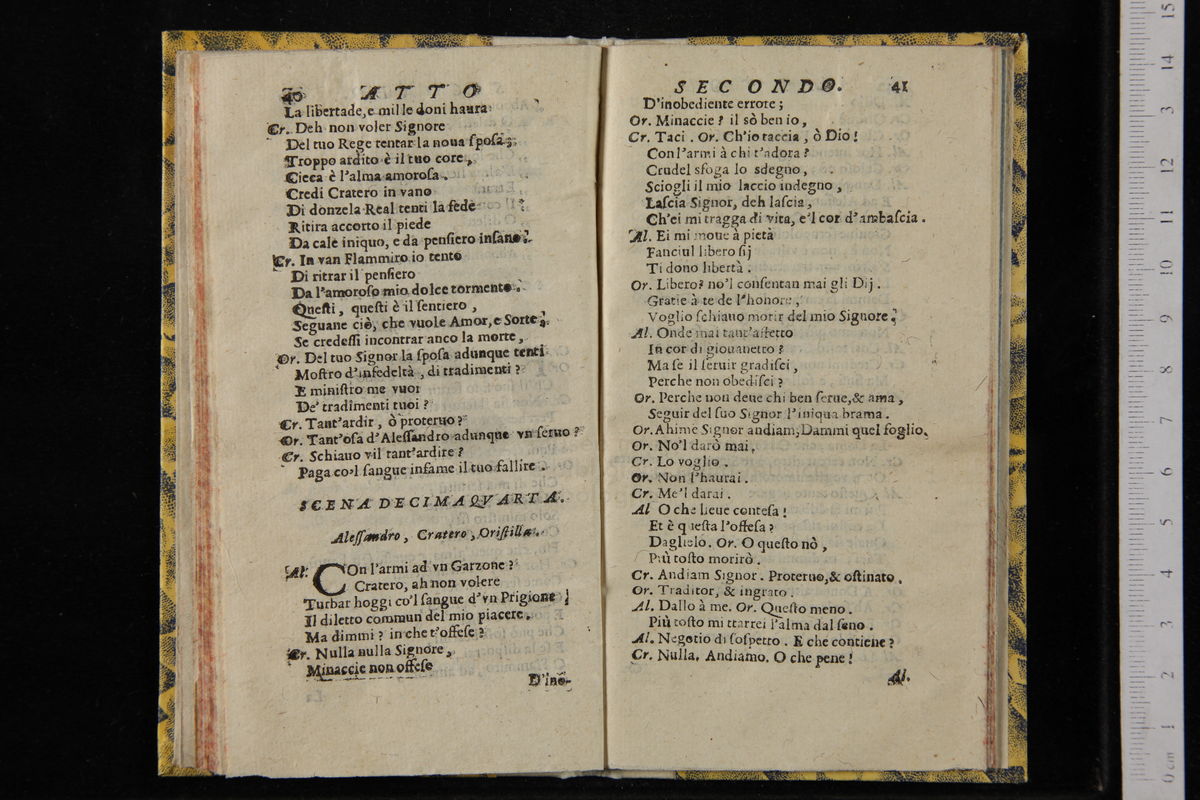 40 ATTO
La libertade, e mille doni haura.
Cr. Deh non voler Signore
Del tuo Rege tentar la noua ſpoſa;
Troppo ardito è il tuo core,
Cieca è l'alma amoroſa.
Credi Cratero in vano
Di donzela Real tenti la fede
Ritira accorto il piede
Da cale iniquo, e da penſiero inſano.
Cr. In van Flammiro io tento
Di ritrar il penſiero
Da l'amoroſo mio dolce tormento.
Queſti, queſti è il ſentiero,
Seguane ciè, che vuole Amor, e Sorte;
Se credeſſi incontrar anco la morte,
Or. Del tuo Signor la ſpoſa adunque tenti
Moſtro d'infedeltà, di tradimenti?
E miniſtro me vuoi
De' tradimenti tuoi?
Cr. Tant'ardir, ò proteruo?
Or. Tant'oſa d'Aleſſandro adunque vn ſeruo?
Cr. Schiauo vil tant'ardire?
Paga co'l ſangue infame il tuo fallire.
SCENA DECIMAQVARTA.
Aleſſandro, Cratero, Oriſtilla.
Al. COn l'armi ad vn Garzone?
Cratero, ah non volere
Turbar hoggi co'l ſangue d'vn Prigione
Il diletto commun del mio piacere.
Ma dimmi? in che t'offeſe?
Cr. Nulla nulla Signore,
Minaccie non offeſe
D'ino-
SECONDO. 41
D'inobediente errore;
Or. Minaccie? il sò ben io,
Cr. Taci. Or. Ch'io taccia, ò Dio!
Con l'armi à chi t'adora?
Crudel sfoga lo sdegno,
Sciogli il mio laccio indegno,
Laſcia Signor, deh laſcia,
Ch'ei mi tragga di vita, e'l cor d'ambaſcia.
Al. Ei mi moue à pietà
Fanciul libero ſij
Ti dono libertà.
Or. Libero? no'l conſentan mai gli Dij.
Gratie à te de l'honore,
Voglio ſchiauo morir del mio Signore.
Al. Onde mai tant'affetto
In cor di giouanetto?
Ma ſe il ſeruir gradiſci,
Perche non obediſci?
Or. Perche non deue chi ben ſerue, & ama,
Seguir del ſuo Signor l'iniqua brama.
Or. Ahime Signor andiam; Dammi quel foglio.
Or. No'l darò mai.
Cr. Lo voglio.
Or. Non l'haurai.
Cr. Me'l darai.
Al O che lieue conteſa!
Et è queſta l'offeſa?
Daglielo. Or. O queſto nò,
Più toſto morirò.
Cr. Andiam Signor. Proteruo, & oſtinato.
Or. Traditor, & ingrato.
Al. Dallo à me. Or. Queſto meno.
Più toſto mi trarrei l'alma dal ſeno.
Al. Negotio di ſoſpetto. E che contiene?
Cr. Nulla. Andiamo. O che pene!
Al.
15
14
13
12
11
10
9
8
7
6
5
4
3
2
1
0 cm